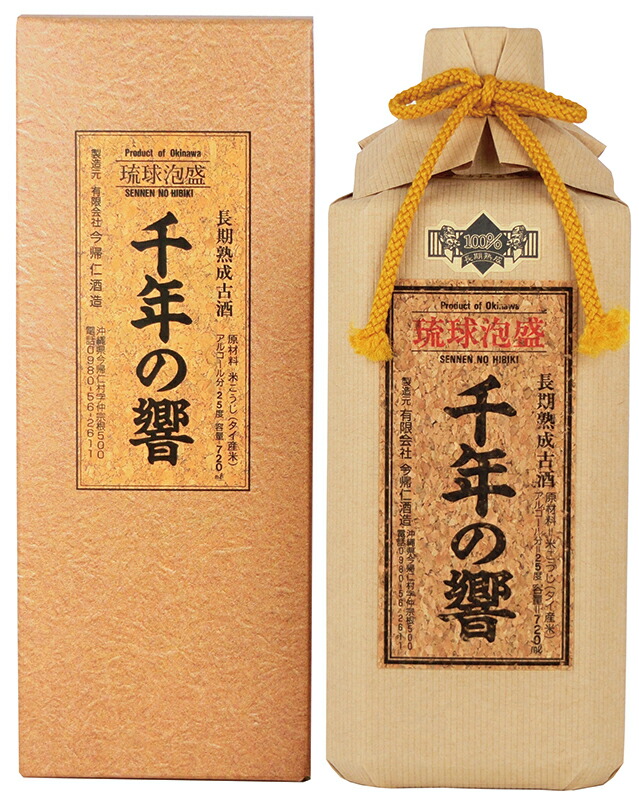 Product of Okinawa
琉球泡盛
SENNEN NO HIBIKI
長期熟成古酒
千年の響
原材料 米こうじ(タイ産米)
アルコール分 25度/容量 720㎖
製造元 有限会社 今帰仁酒造
沖縄県今帰仁村字仲宗根500
電話0980-56-2611
100%
長期熟成
Product of Okinawa
琉球泡盛
SENNEN NO HIBIKI
長期熟成古酒
千年の響
原材料 米こうじ(タイ産米)
アルコール分 25度/容量 720㎖
製造元 有限会社 今帰仁酒造
沖縄県今帰仁村字仲宗根500
電話0980-56-2611